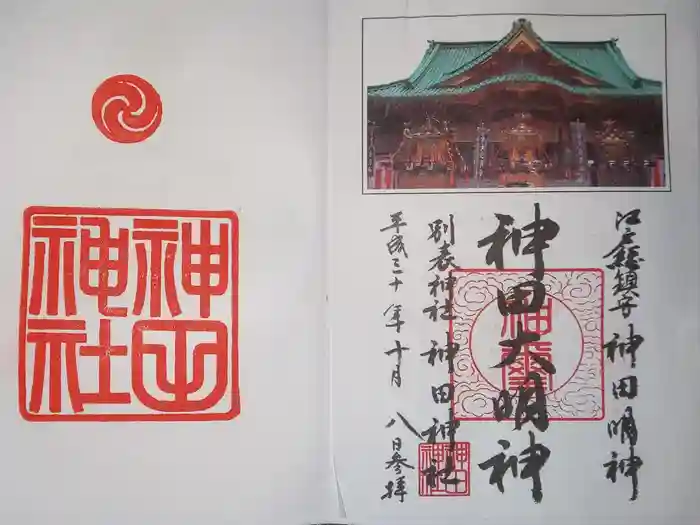 江戸総鎮守 神田明神
神田大明神
別表神社 神田神社
平成三十年十月八日参拝
神田神社
神田神社